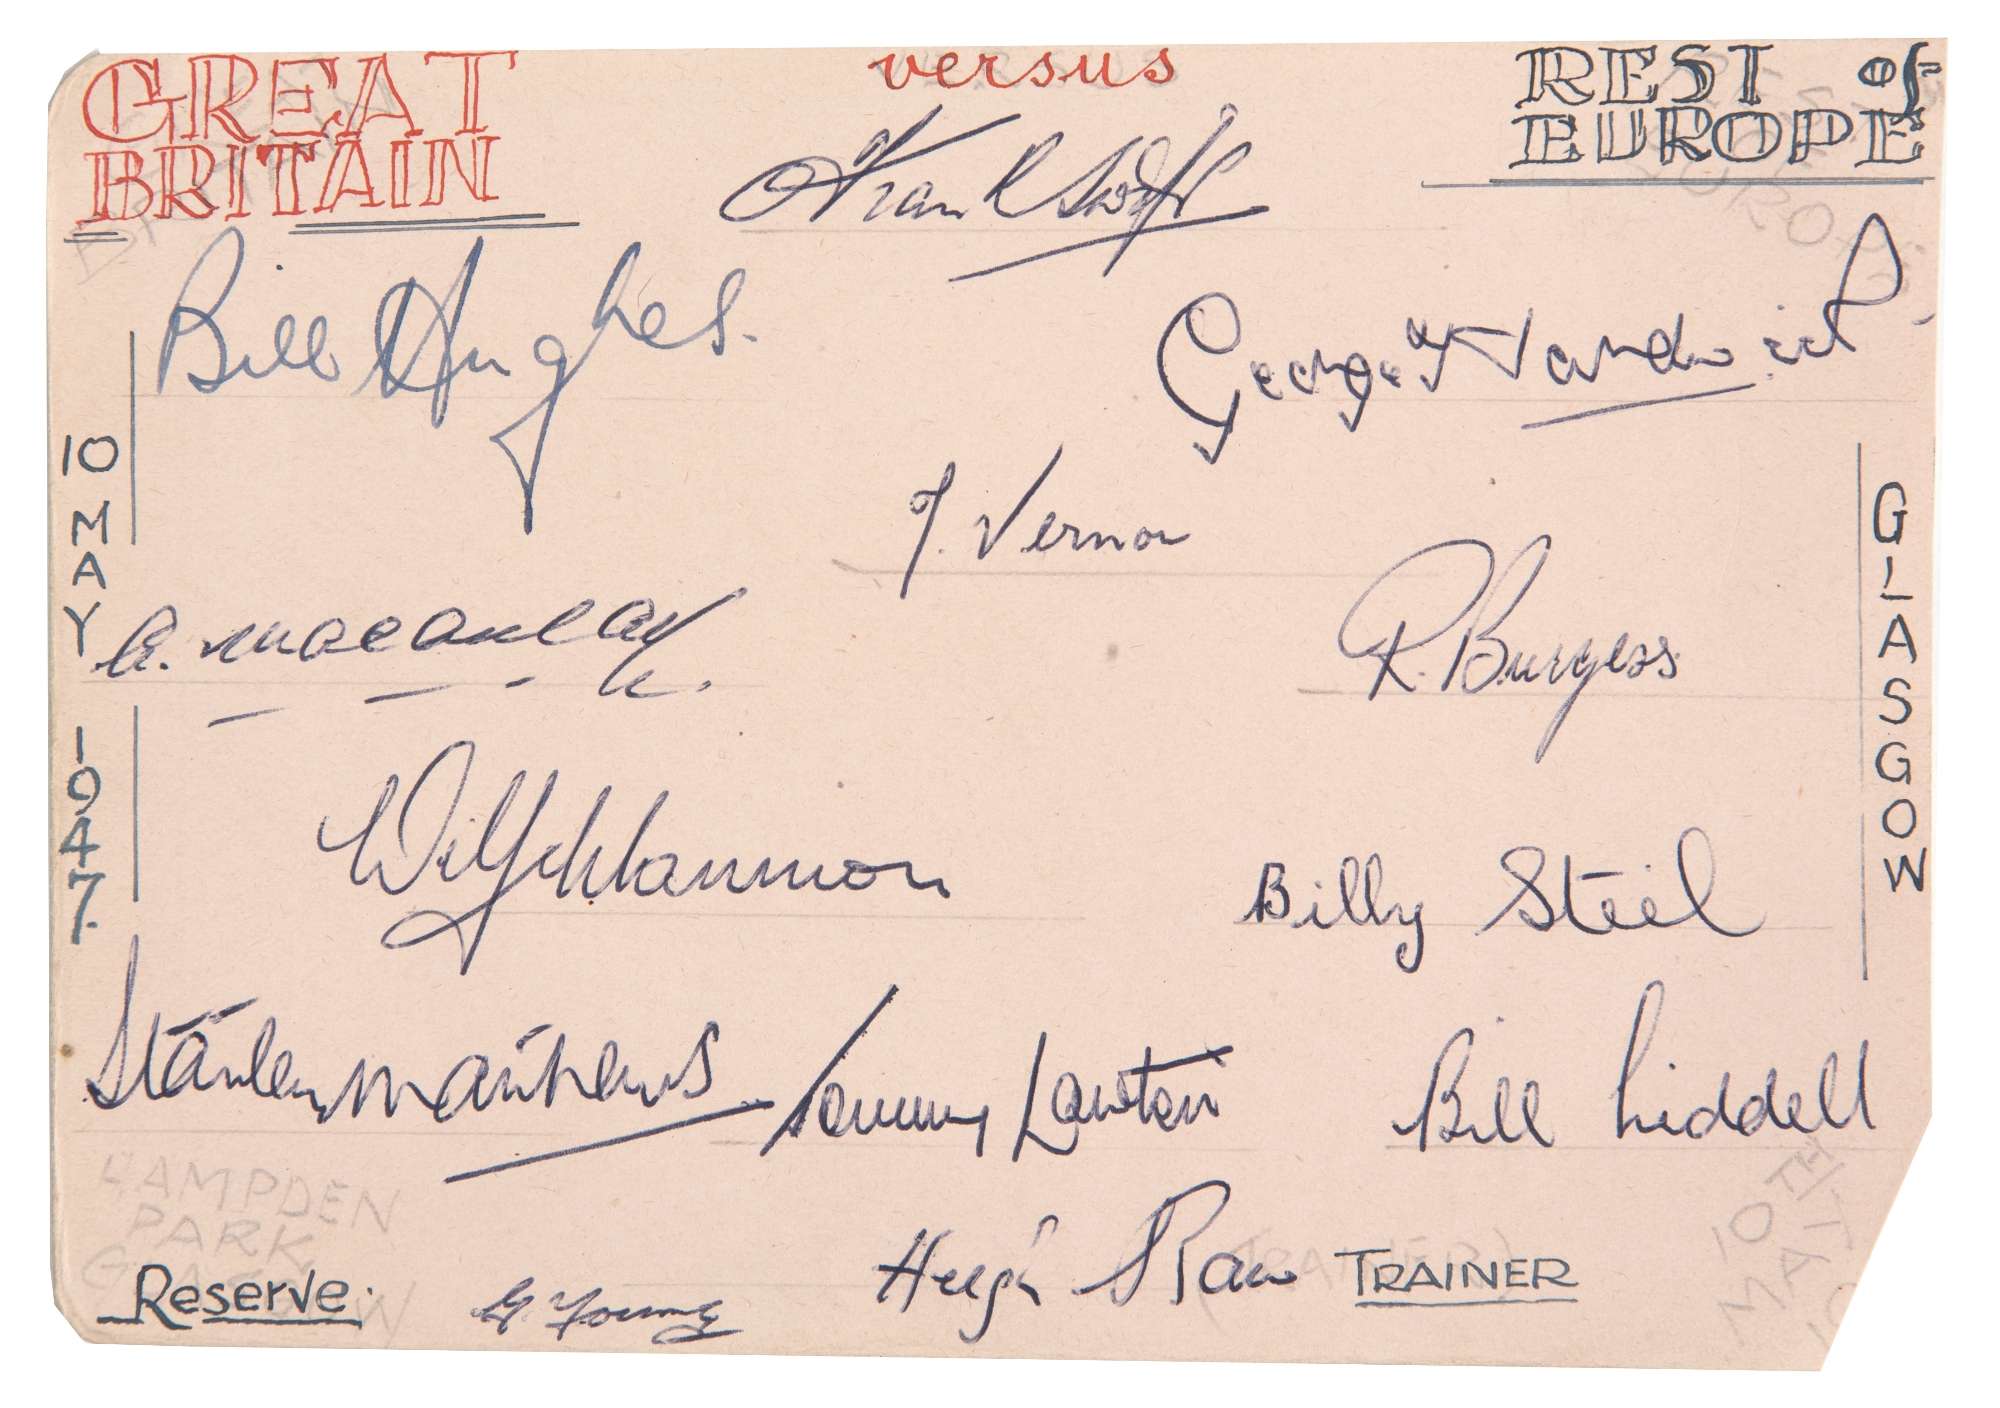 GREAT BRITAIN
versus
REST of EUROPE
Frank Swift
Bill Hughes.
George Hardwick
J. Vernon
A. Macaulay.
R. Burgess
Wilf Mannion
Billy Steel
Stanley Matthews
Tommy Lawton
Bill Liddell
Hugh Shaw TRAINER
Reserve. G. Young
10 MAY 1947.
GLASGOW
HAMPDEN
PARK
GLASGOW
10TH
MAY